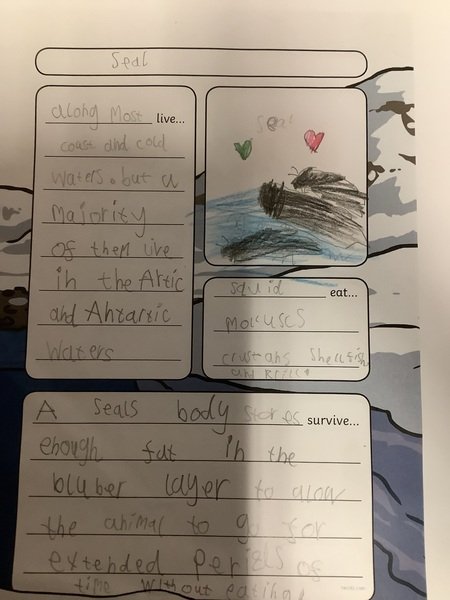 Seal
along Most live...
coast and cold
waters. but a
Majority
of them live
in the Artic
and Antartic
waters
Seal
squid eat...
Molcuscs
crustans Shellfish
and krill!
A Seals body stores survive...
enough fat in the
bluber layer to alow
the animal to go for
extended periels of
time without eating!